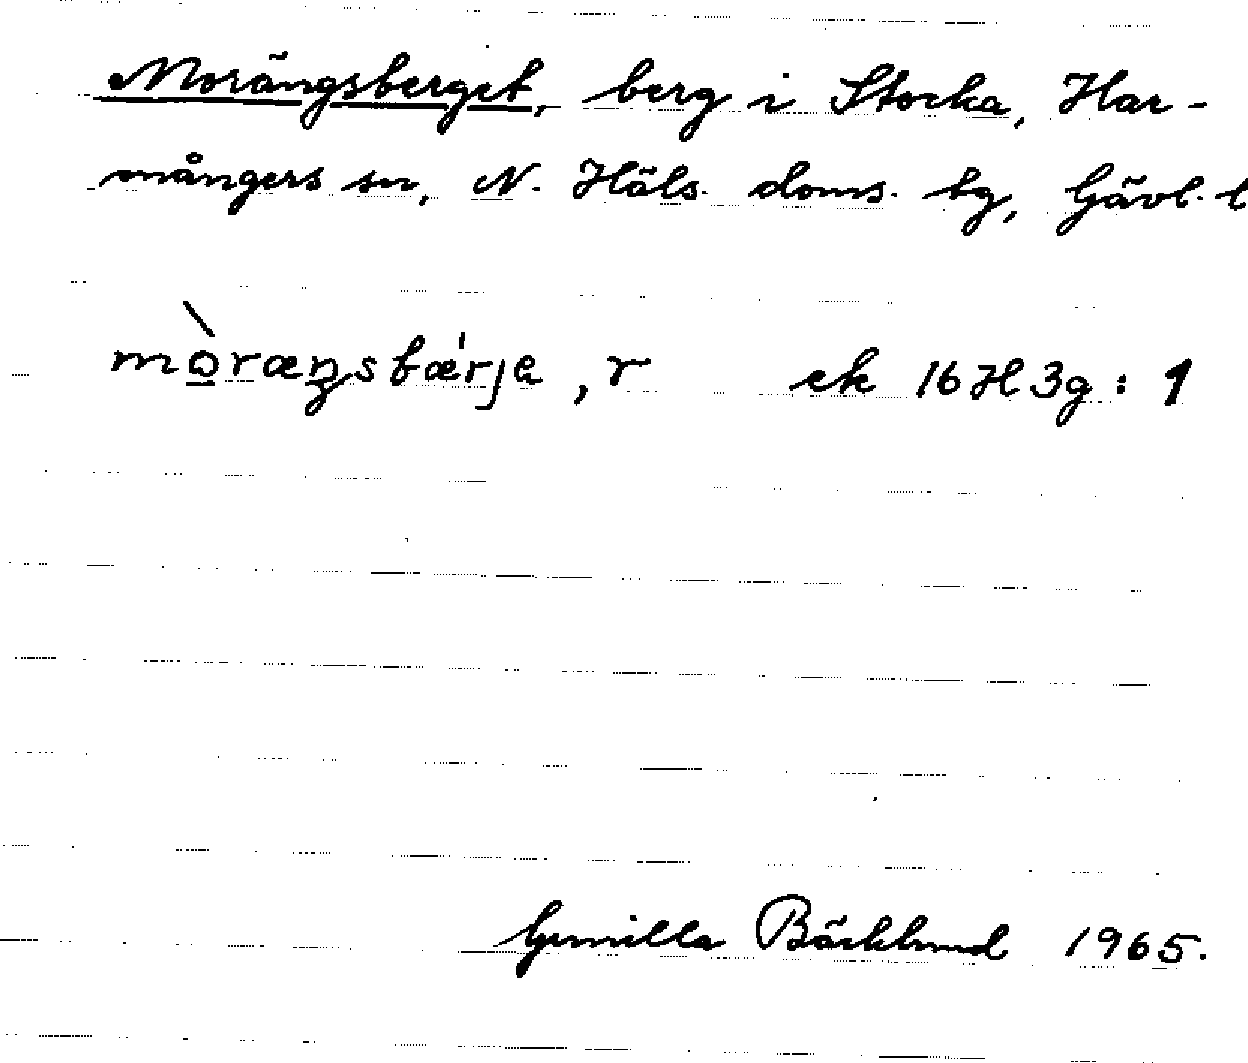 Morängsberget, berg i Stocka, Har-
mångers sn, N. Häls. doms. tg, Gävl. l
mò̱ræŋsbǽrjɐ, r ek 16H3g:1
Gunilla Bäcklund 1965.